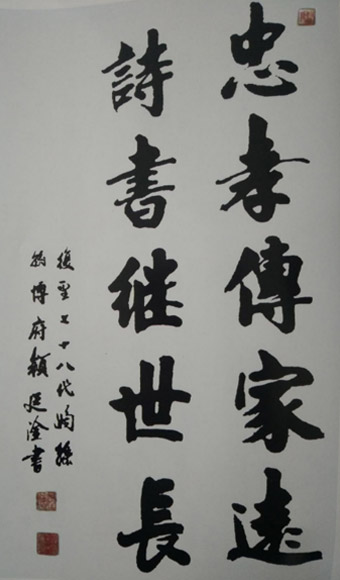 忠孝傳家遠
詩書继世長
復聖七十八代嫡孫
翰博府顏廷淦書